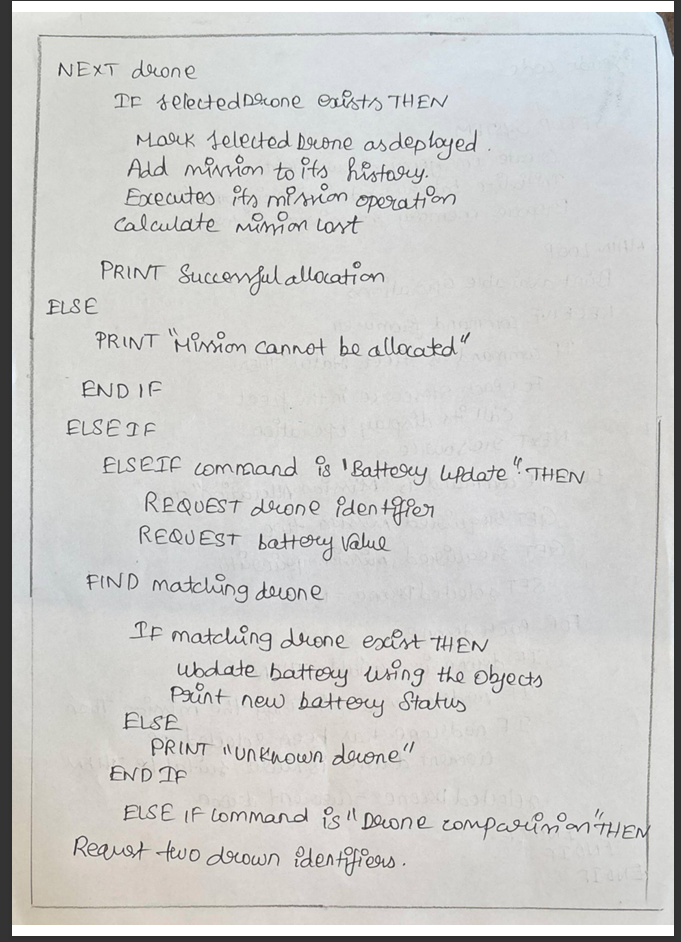 NEXT drone
IF selectedDrone exists THEN
Mark selected Drone as deployed.
Add mission to its history.
Executes its mission operation
Calculate mission cost
PRINT Successful allocation
ELSE
PRINT "Mission cannot be allocated"
END IF
ELSE IF
ELSEIF command is "Battery Update" THEN
REQUEST drone identifier
REQUEST battery value
FIND matching drone
IF matching drone exist THEN
Update battery using the Objects
Print new battery Status
ELSE
PRINT "Unknown drone"
END IF
ELSE IF command is "Drone comparision" THEN
Request two drown identifiers.